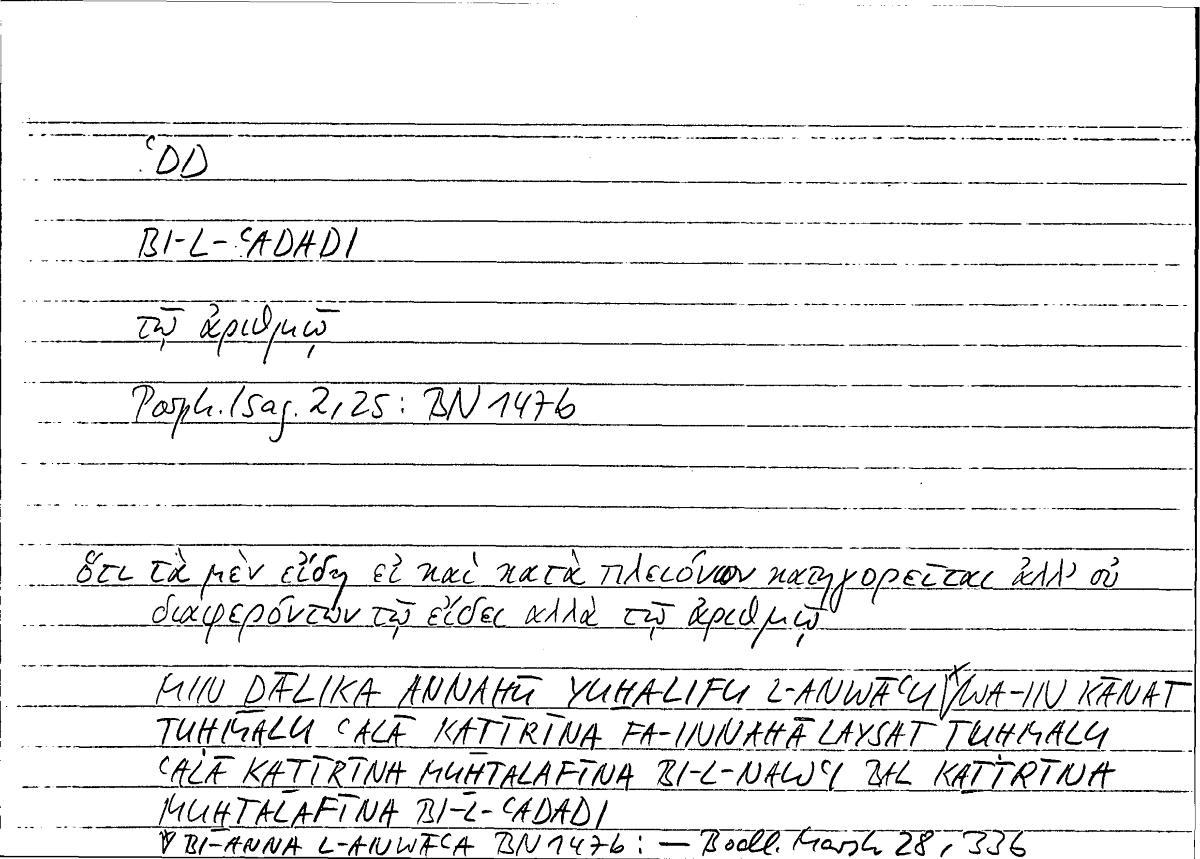 ʿDD
BI-L-ʿADADI
τῷ ἀριθμῷ
Porph. Isag. 2,25: BN 147b
ὅτι τὰ μὲν εἴδη εἰ καὶ κατὰ πλειόνων κατηγορεῖται ἀλλ' οὐ
διαφερόντων τῷ εἴδει αλλὰ τῷ ἀριθμῷ
MIN ḎĀLIKA ANNAHŪ YUḪALIFU L-ANWĀʿU WA-IN KĀNAT
TUḤMALU ʿALĀ KAṮĪRĪNA FA-INNAHĀ LAYSAT TUḤMALU
ʿALĀ KAṮĪRĪNA MUḪTALAFĪNA BI-L-NAWʿI BAL KAṮĪRĪNA
MUḪTALAFĪNA BI-L-ʿADADI
BI-ANNA L-ANWĀʿA BN 147b: — Bodl. Marsh 28, 336